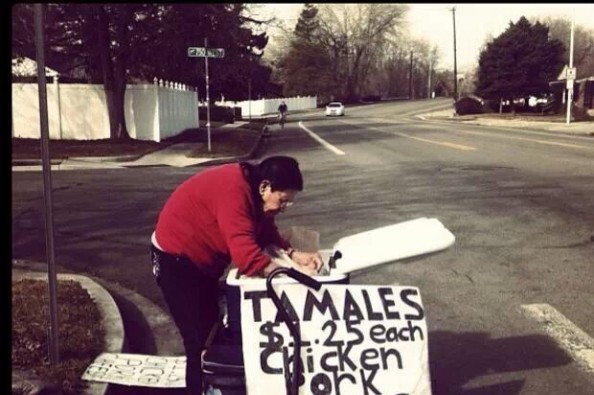 750
TAMALES
$1.25 each
Chicken
Pork